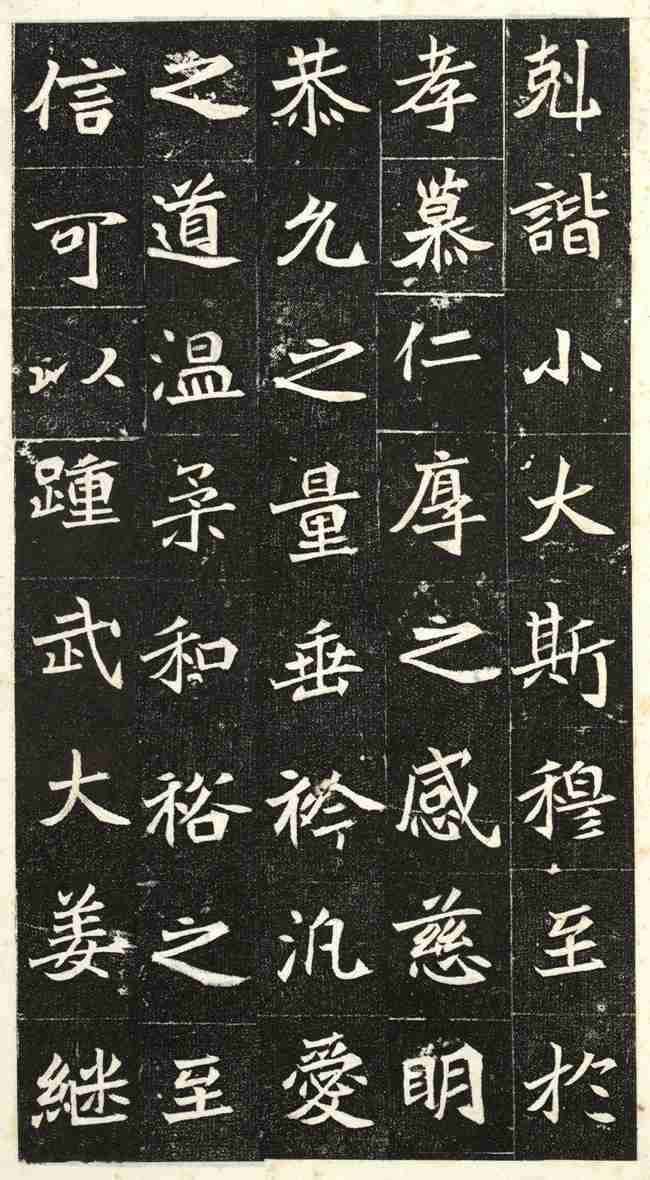 剋諧小大斯穆至扵
孝慕仁厚之感慈明
恭允之量垂衿汎愛
之道温柔和裕之至
信可以踵武大姜継